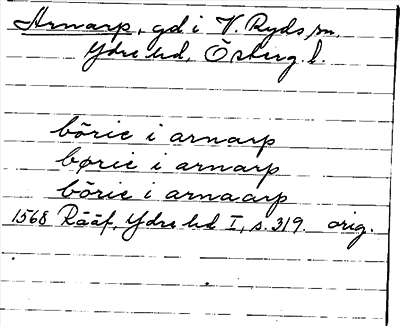 Arnarp, gd i V. Ryds sn.
Ydre hd, Österg. l.
börie i arnarp
børie i arnarp
börie i arnaarp
1568 Rääf, Ydre hd I, s. 319. orig.